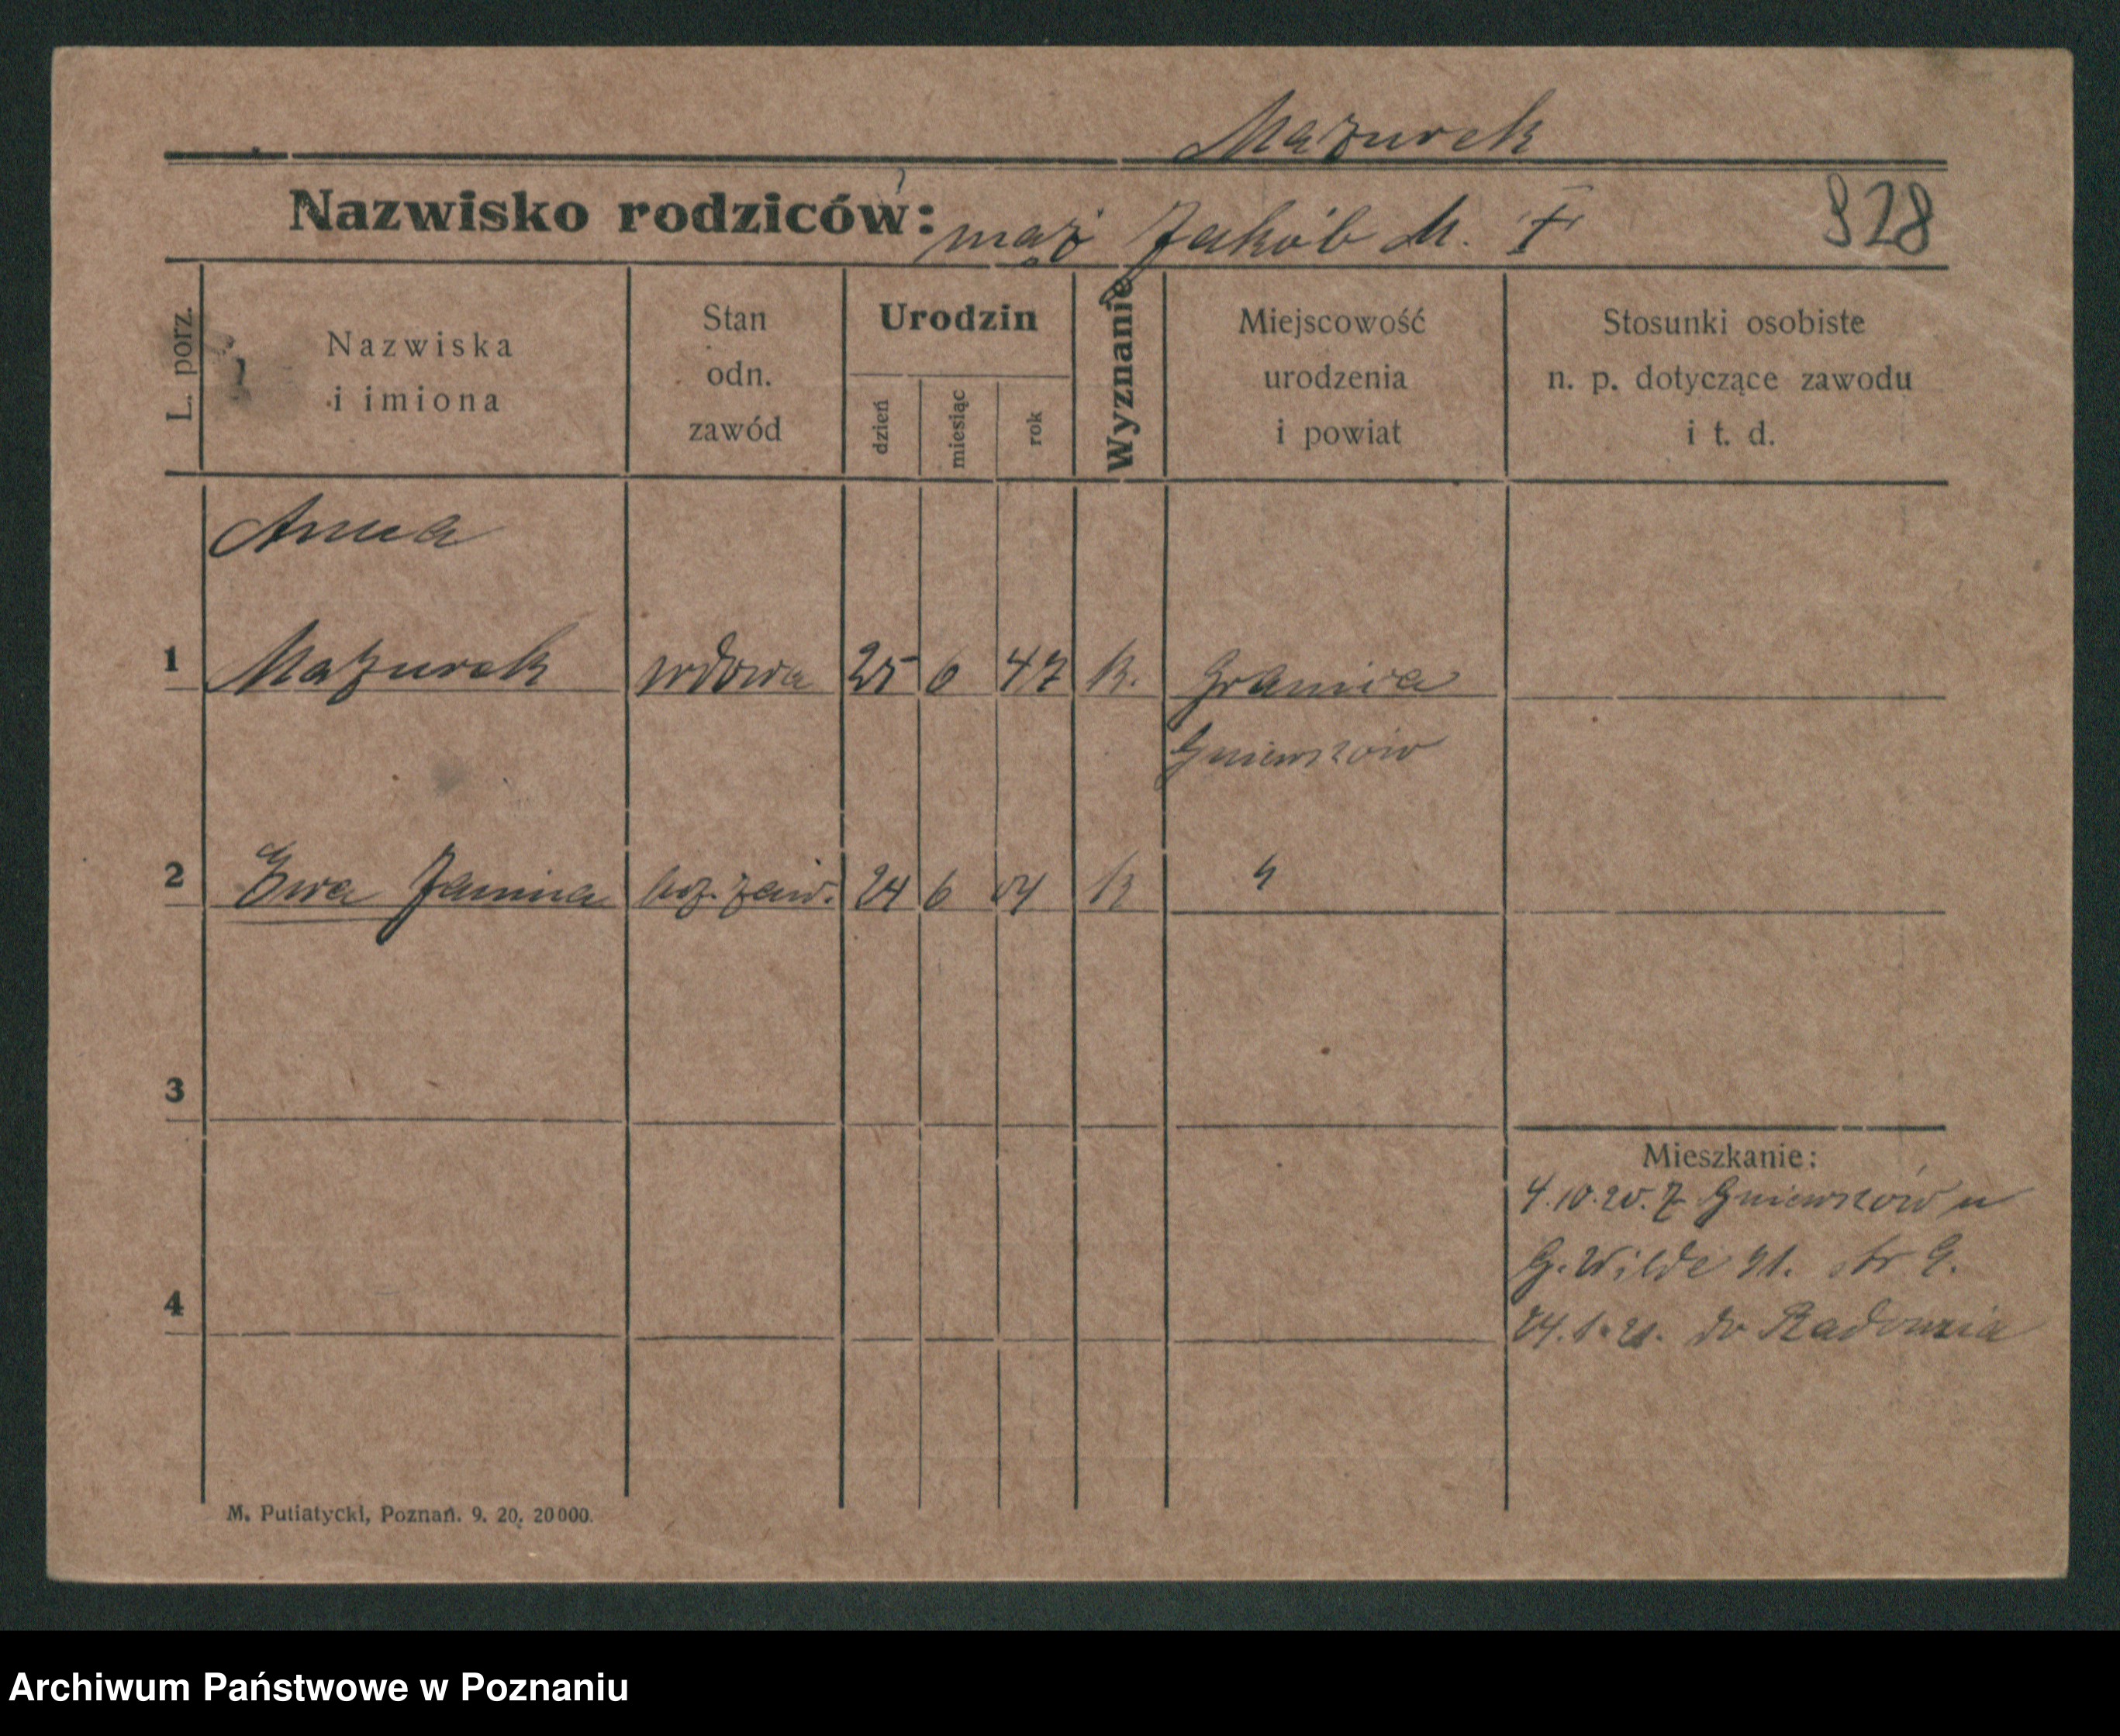 Mazurek
Nazwisko rodziców: mąż Jakób M. † 828
L. porz.
Nazwiska i imiona
Stan odn. zawód
Urodzin
dzień
miesiąc
rok
Wyznanie
Miejscowość urodzenia i powiat
Stosunki osobiste n. p. dotyczące zawodu i t. d.
Anna
1 Mazurek wdowa 25 6 47 k. Granica
Gniewszów
2 Ewa Janina bez zaw. 24 6 04 k "
3
Mieszkanie:
4.10.20. z Gniewszów u
G. Wilde 31. ptr 9.
4
do Radomia
M. Putiatycki, Poznań. 9. 20. 20000.
Archiwum Państwowe w Poznaniu